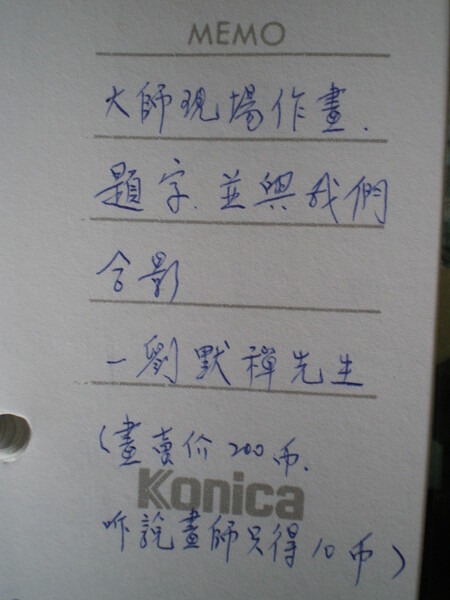 MEMO
大師現場作畫.
題字.並與我們
合影
—劉默禪先生
(畫賣价200币.
Konica
咋說畫師只得10币)